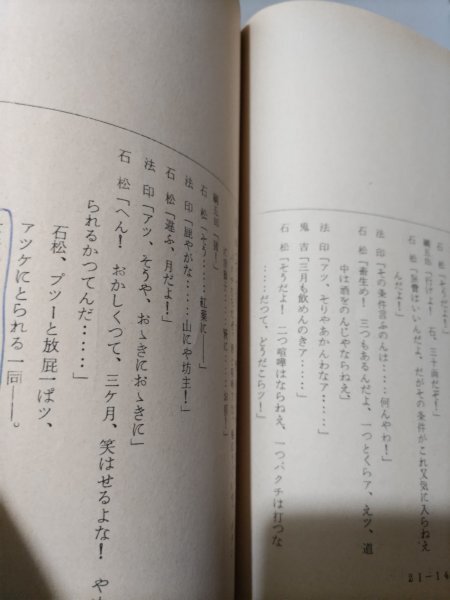 石　松「そうだよ！」
綱五郎「行けよ！　石、三十両だぞ！」
石　松「旅費はいいんだよ、だがその条件がこれ又気に入らねえ
んだよ！」
法　印「その条件言ふのんは‥‥‥何んやわ！」
石　松「畜生め！　三つもあるんだよ、一つとくらァ、えッ、道
中は酒をのんじやならねえ」
法　印「アッ、そりやあかんわなァ‥‥‥」
鬼　吉「三月も飲めんのきァ‥‥‥」
石　松「そうだよ！　二つ喧嘩はならねえ、一つバクチは打つな
‥‥‥だつて、どうだこらッ！」
21-14
綱五郎「猪！」
石　松「そう‥‥‥紅葉に――」
法　印「屁やがな‥‥‥山にや坊主！」
石　松「違ふ、月だよ！」
法　印「アッ、そうや、おゝきにおゝきに」
石　松「へん！　おかしくつて、三ケ月、笑はせるよな！　や
られるかつてんだ‥‥‥」
石松、プツーと放屁一ぱツ、
アツケにとられる一同――。